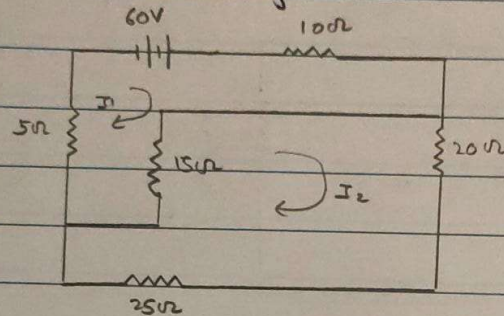 60V
10Ω
I1
5Ω
15Ω
20Ω
I2
25Ω